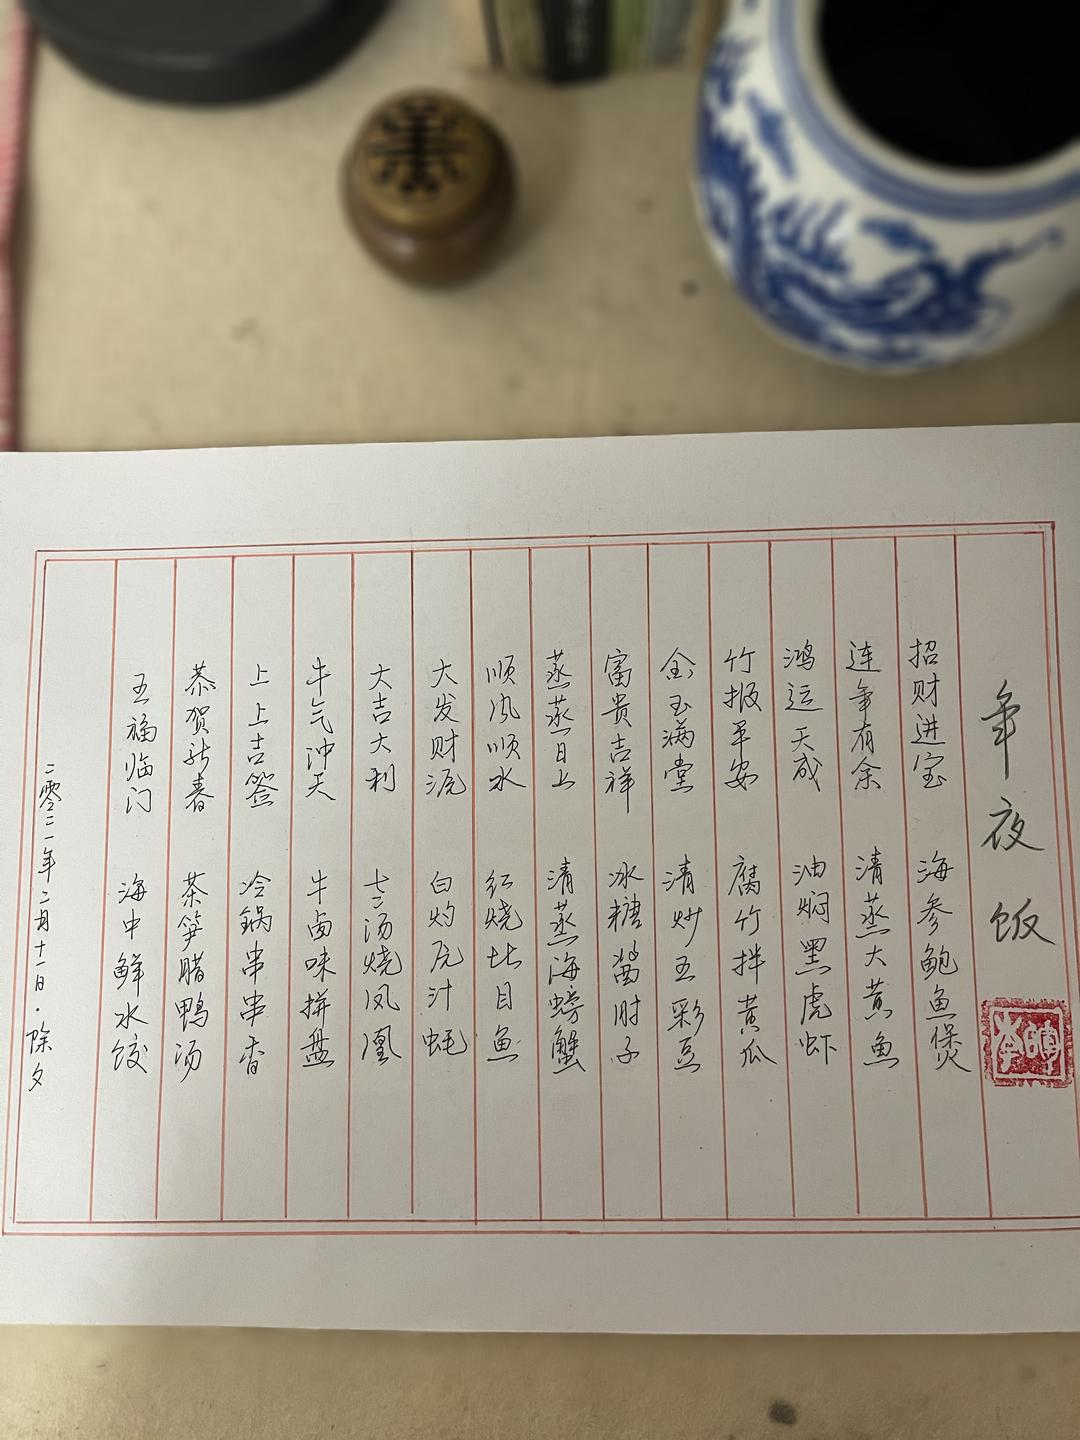 年夜饭
招财进宝 海参鲍鱼煲
连年有余 清蒸大黄鱼
鸿运天成 油焖黑虎虾
竹报平安 腐竹拌黄瓜
金玉满堂 清炒五彩豆
富贵吉祥 冰糖酱肘子
蒸蒸日上 清蒸海螃蟹
顺风顺水 红烧比目鱼
大发财源 白灼原汁蚝
大吉大利 七汤烧凤凰
牛气冲天 牛卤味拼盘
上上吉签 冷锅串串香
恭贺新春 茶笋腊鸭汤
五福临门 海中鲜水饺
二零二一年二月十一日·除夕